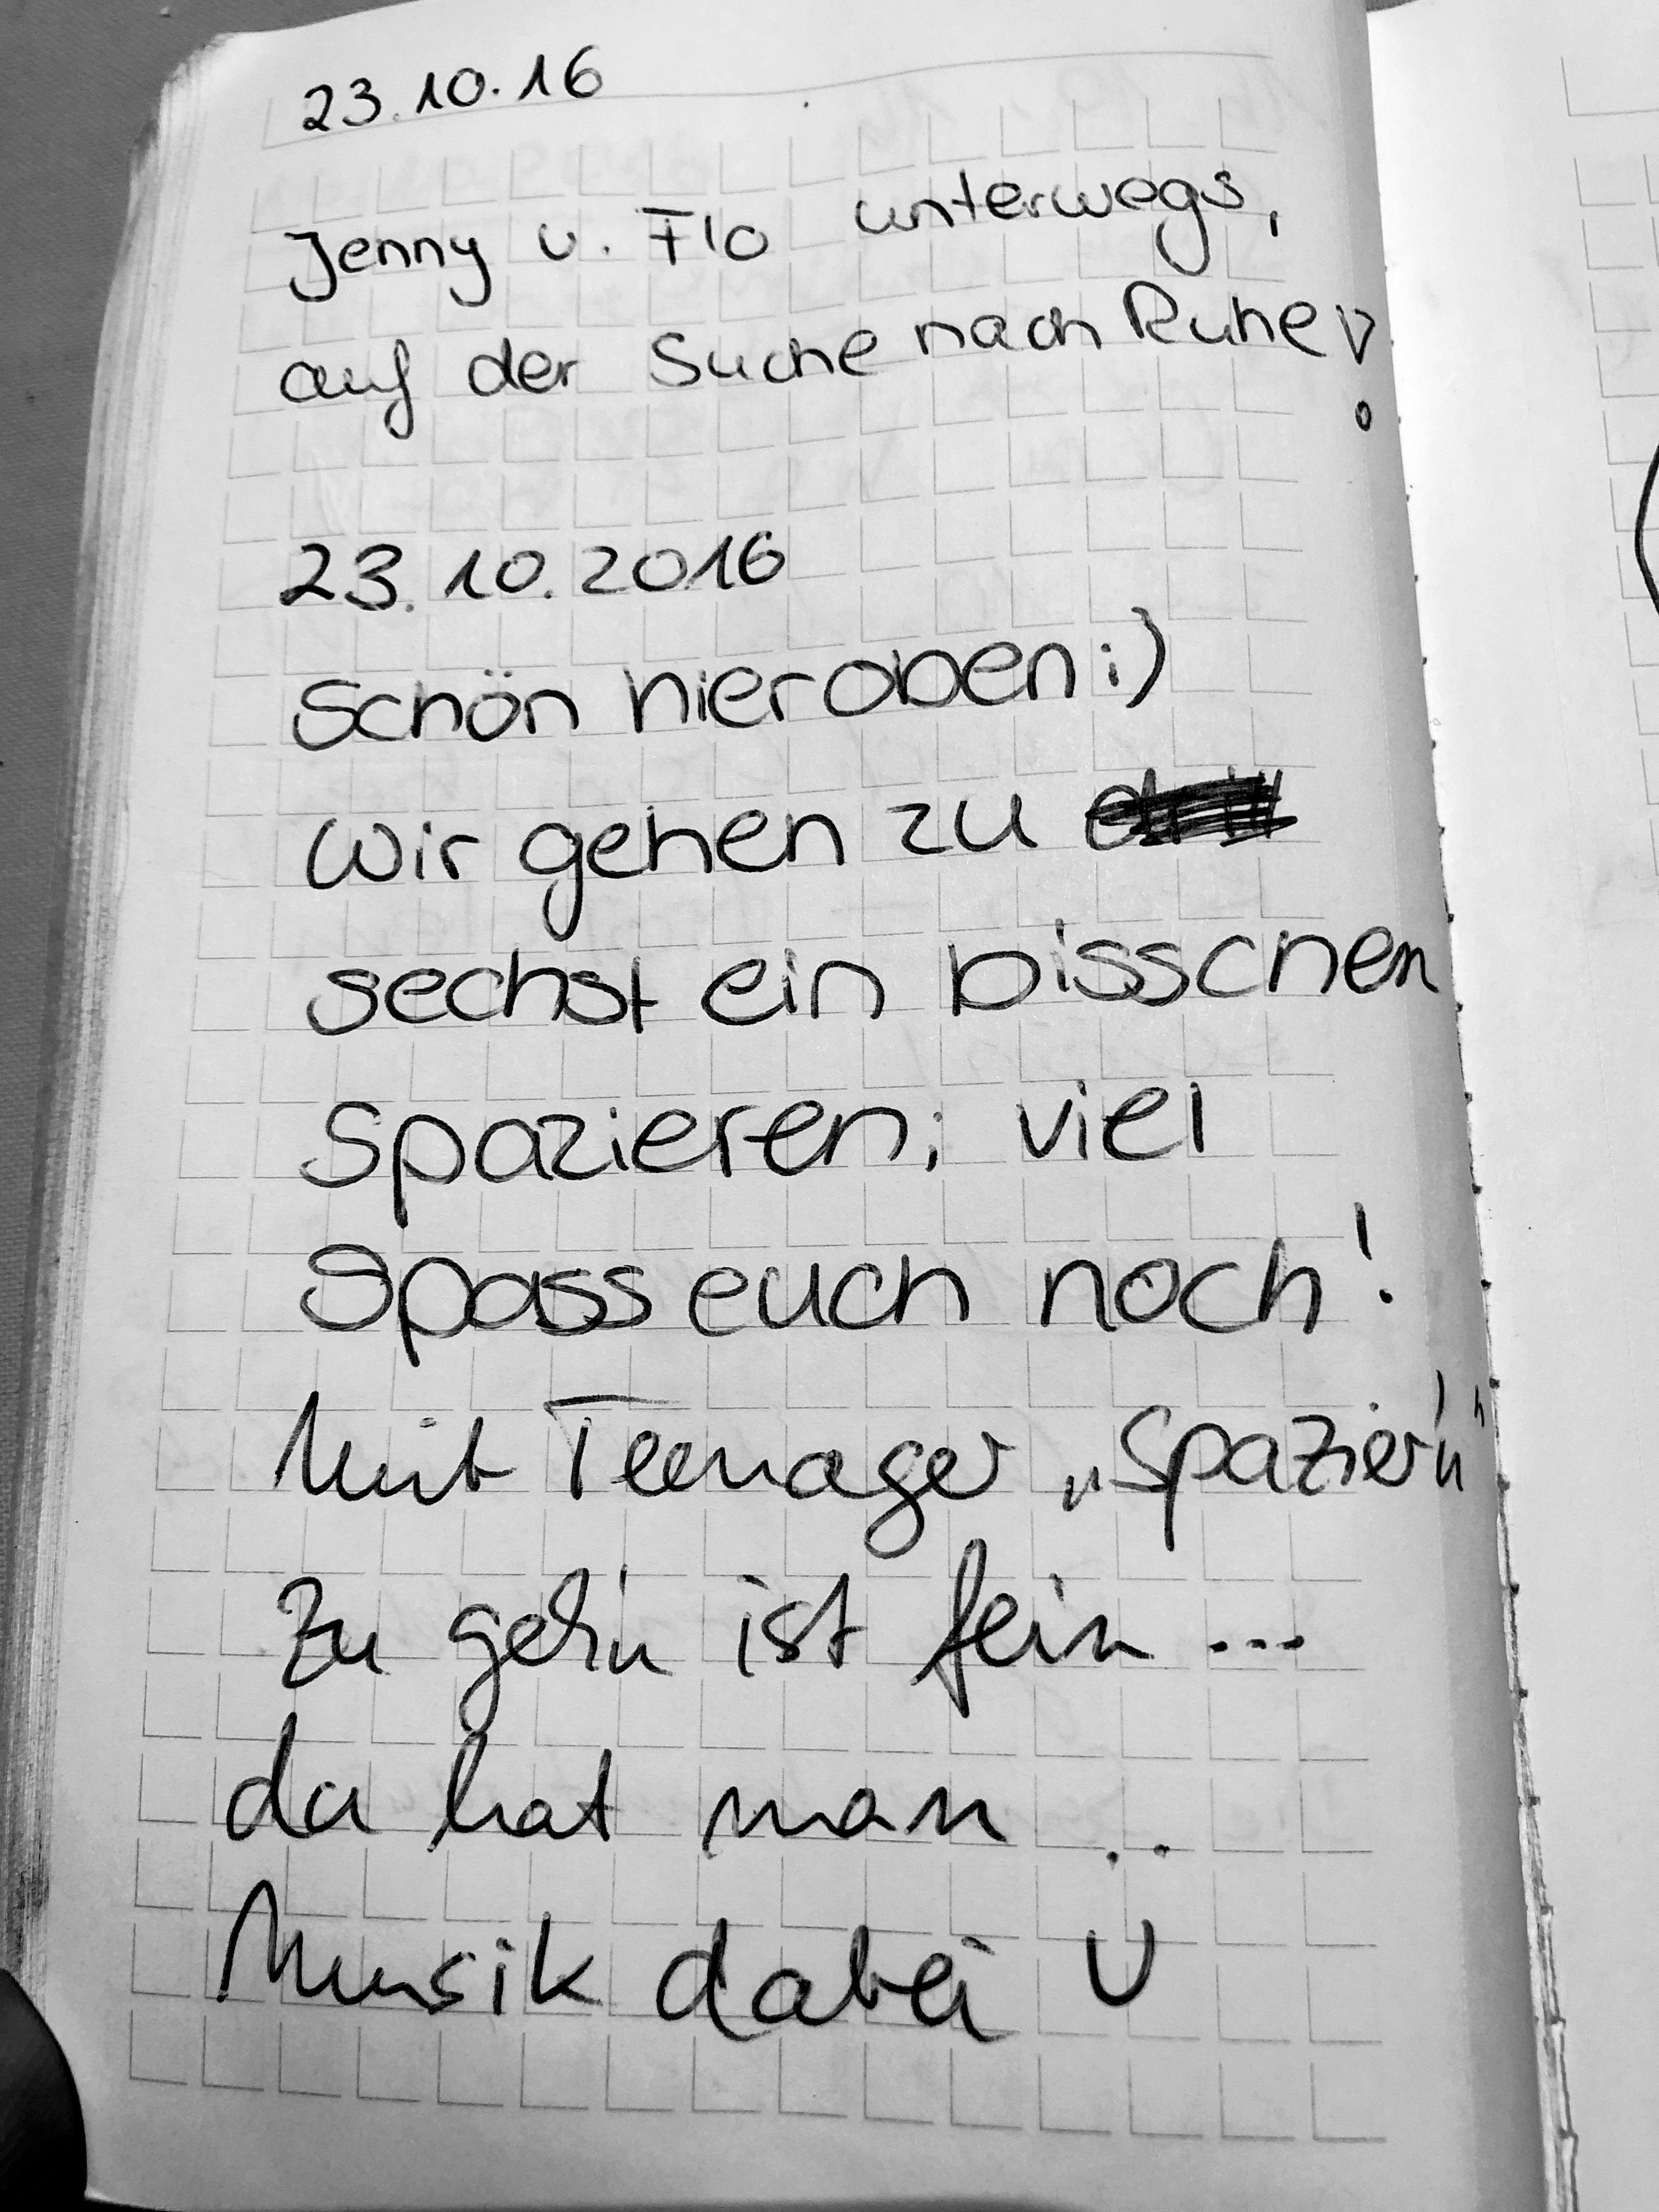 23.10.16
Jenny u. Flo unterwegs,
auf der Suche nach Ruhe!
23.10.2016
Schön hier oben :)
Wir gehen zu
sechst ein bisschen
spazieren; viel
Spass euch noch!
Mit Teenager „Spazier'n"
zu geh'n ist fein ...
da hat man
Musik dabei Ü